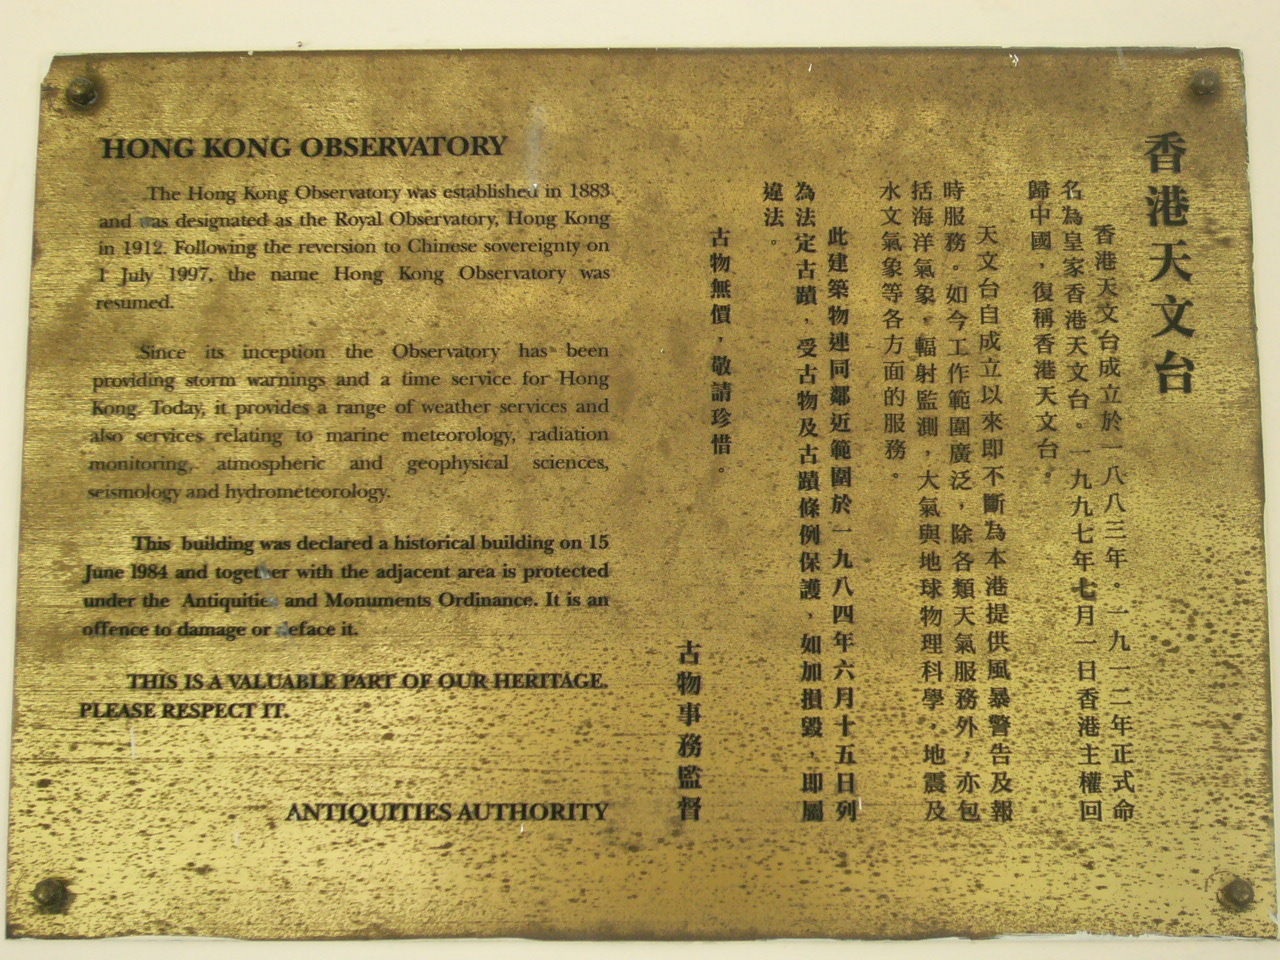 HONG KONG OBSERVATORY
The Hong Kong Observatory was established in 1883
and was designated as the Royal Observatory, Hong Kong
in 1912. Following the reversion to Chinese sovereignty on
1 July 1997, the name Hong Kong Observatory was
resumed.
Since its inception the Observatory has been
providing storm warnings and a time service for Hong
Kong. Today, it provides a range of weather services and
also services relating to marine meteorology, radiation
monitoring, atmospheric and geophysical sciences,
seismology and hydrometeorology.
This building was declared a historical building on 15
June 1984 and together with the adjacent area is protected
under the Antiquities and Monuments Ordinance. It is an
offence to damage or deface it.
THIS IS A VALUABLE PART OF OUR HERITAGE.
PLEASE RESPECT IT.
ANTIQUITIES AUTHORITY
香港天文台
香港天文台成立於一八八三年。一九一二年正式命
名為皇家香港天文台。一九九七年七月一日香港主權回
歸中國，復稱香港天文台。
天文台自成立以來即不斷為本港提供風暴警告及報
時服務。如今工作範圍廣泛，除各類天氣服務外，亦包
括海洋氣象，輻射監測，大氣與地球物理科學，地震及
水文氣象等各方面的服務。
此建築物連同鄰近範圍於一九八四年六月十五日列
為法定古蹟，受古物及古蹟條例保護，如加損毀，即屬
違法。
古物無價，敬請珍惜。
古物事務監督